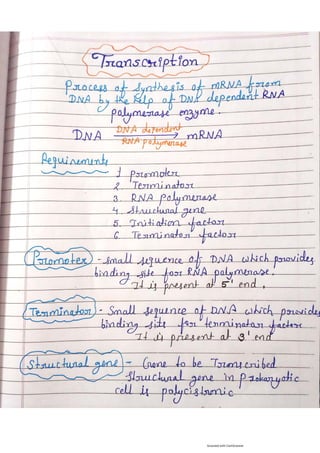 Transcription
Process of Synthesis of mRNA from
DNA by the help of DNA dependent RNA
polymerase enzyme.
DNA DNA dependent RNA polymerase mRNA
Requirements
1 Promoter
2 Terminator
3. RNA Polymerase
4. Structural gene
5. Initiation factor
6 Terminator factor
Promoter - small sequence of DNA which provides
binding site for RNA polymerase.
It is present at 5' end.
Terminator - Small sequence of DNA which provides
binding site for terminator factor
It is present at 3' end
Structural gene - Gene to be Transcribed
Structural gene in Prokaryotic
cell is polycistronic
Scanned with CamScanner